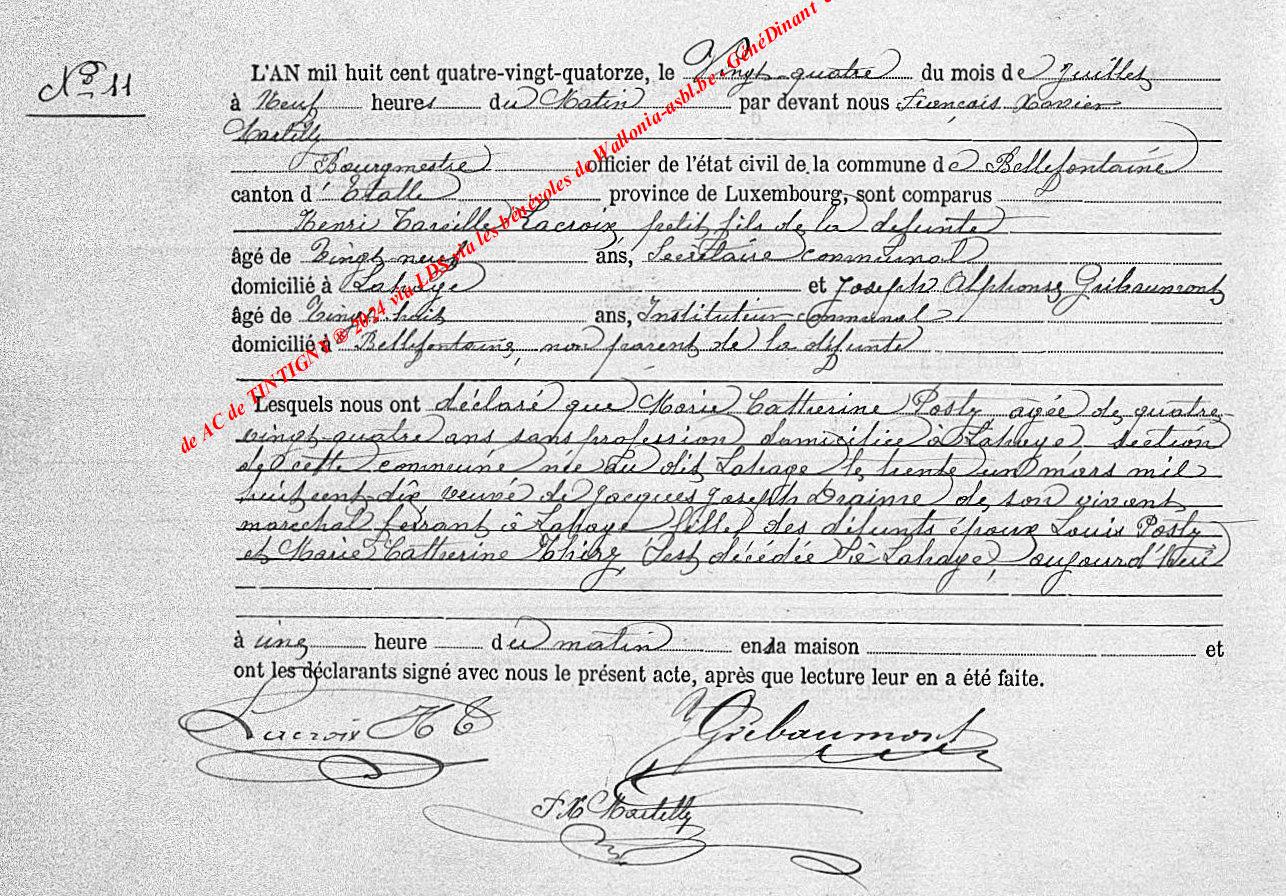 N° 11
L'AN mil huit cent quatre-vingt-quatorze, le Vingt-quatre du mois de Juillet
à Neuf heures du Matin par devant nous François Xavier
Martilly
Bourgmestre officier de l'état civil de la commune de Bellefontaine
canton d'Etalle province de Luxembourg, sont comparus
Henri Lacroix petit fils de la défunte
âgé de Vingt neuf ans, Secrétaire communal
domicilié à Lahage et Joseph Alphonse Gribaumont
âgé de Vingt huit ans, Instituteur communal
domicilié à Bellefontaine, non parent de la défunte
Lesquels nous ont déclaré que Marie Catherine Posty agée de quatre-
vingt-quatre ans sans profession domiciliée à Lahage section
de cette commune née au dit Lahage le trente un mars mil
huit cent-dix veuve de Jacques Joseph Draime de son vivant
maréchal ferrant à Lahage fille des défunts époux Louis Posty
et Marie Catherine Thiry, est décédée à Lahage, aujourd'hui
à cinq heure du matin en sa maison et
ont les déclarants signé avec nous le présent acte, après que lecture leur en a été faite.
Lacroix H T
Gribaumont
F X Martilly
de AC de TINTIGNY ® 2024 via LDS via les bénévoles de Wallonia-asbl.be - GénéDinant